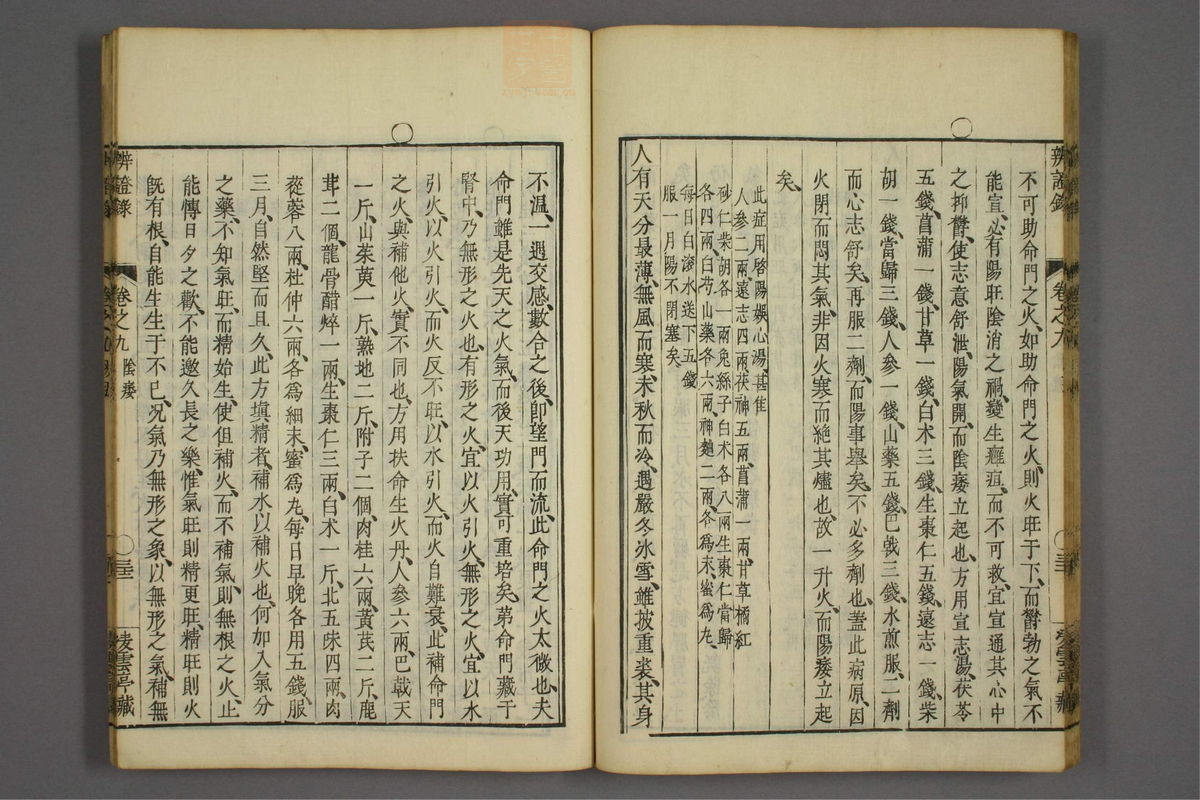 辨證錄 卷之九
不可助命門之火、如助命門之火、則火旺于下、而鬱勃之氣不
能宣、必有陽旺陰消之禍、變生癰疽、而不可救、宜宣通其心中
之抑鬱、使志意舒泄、陽氣開、而陰痿立起也、方用宣志湯、茯苓
五錢、菖蒲一錢、甘草一錢、白朮三錢、生棗仁五錢、遠志一錢、柴
胡一錢、當歸三錢、人參一錢、山藥五錢、巴戟三錢、水煎服、二劑
而心志舒矣、再服二劑、而陽事舉矣、不必多劑也、蓋此病原因
火閉而悶其氣、非因火寒而絶其燼也、故一升火、而陽痿立起
矣、
此症用啓陽娛心湯、甚佳
人參二兩、遠志四兩、茯神五兩、菖蒲一兩、甘草橘紅
砂仁柴胡各一兩、兔絲子白朮各八兩、生棗仁當歸
各四兩、白芍山藥各六兩、神麯二兩、各爲末、蜜爲丸、
每日白滚水送下五錢
服一月陽不閉塞矣、
人有天分最薄、無風而寒、未秋而冷、遇嚴冬冰雪、雖披重裘、其身
不溫、一遇交感、數合之後、即望門而流、此命門之火太微也、夫
命門雖是先天之火氣、而後天功用、實可重培矣、第命門藏于
腎中、乃無形之火也、有形之火、宜以火引火、無形之火、宜以水
引火、以火引火、而火反不旺、以水引火、而火自難衰、此補命門
之火、與補他火、實不同也、方用扶命生火丹、人參六兩、巴戟天
一斤、山茱萸一斤、熟地二斤、附子二個、肉桂六兩、黃芪二斤、鹿
茸二個、龍骨醋焠一兩、生棗仁三兩、白朮一斤、北五味四兩、肉
蓯蓉八兩、杜仲六兩、各爲細末、蜜爲丸、每日早晚各用五錢、服
三月、自然堅而且久、此方填精者、補水以補火也、何如入氣分
之藥、不知氣旺、而精始生、使但補火、而不補氣、則無根之火、止
能博日夕之歡、不能邀久長之樂、惟氣旺則精更旺、精旺則火
既有根、自能生生于不已、況氣乃無形之象、以無形之氣、補無
辨證錄 卷之九 陰痿 三三 凌雲亭藏